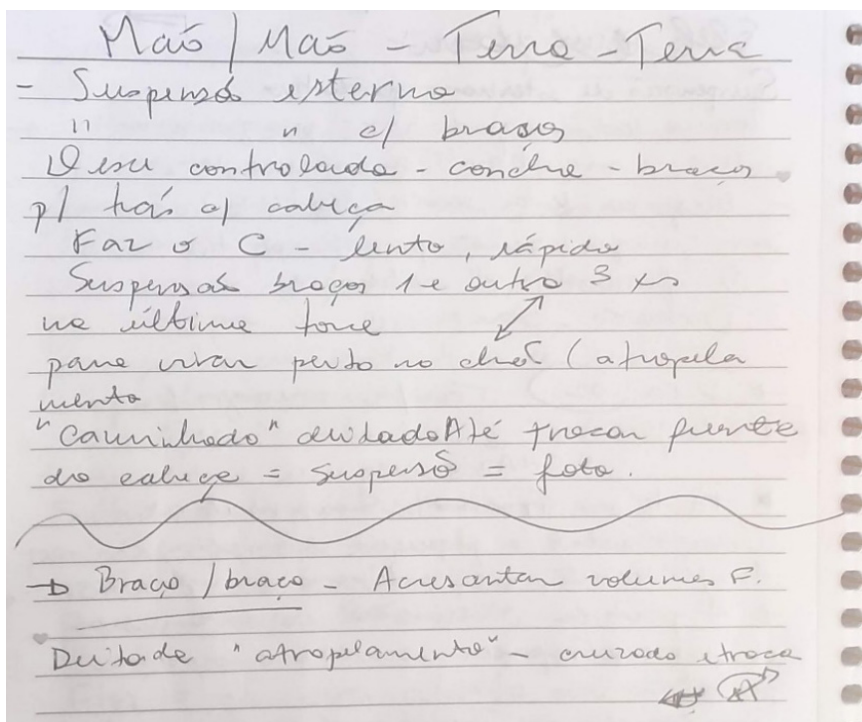 Mão / Mão - Terra - Terra
- Suspensão esterno
" " c/ braços
Desce controlada - concha - braços
p/ trás c/ cabeça
Faz o C - lento, rápido
Suspensão braços 1 e outro 3 xs
na última torce
para virar peito no chão (atropela
mento
"Caminhado" deitado Até trocar frente
da cabeça = suspensõ = foto.
→ Braço / braço - Acresantar volumes F.
Deitade "atropelamento" - cruzado e troca